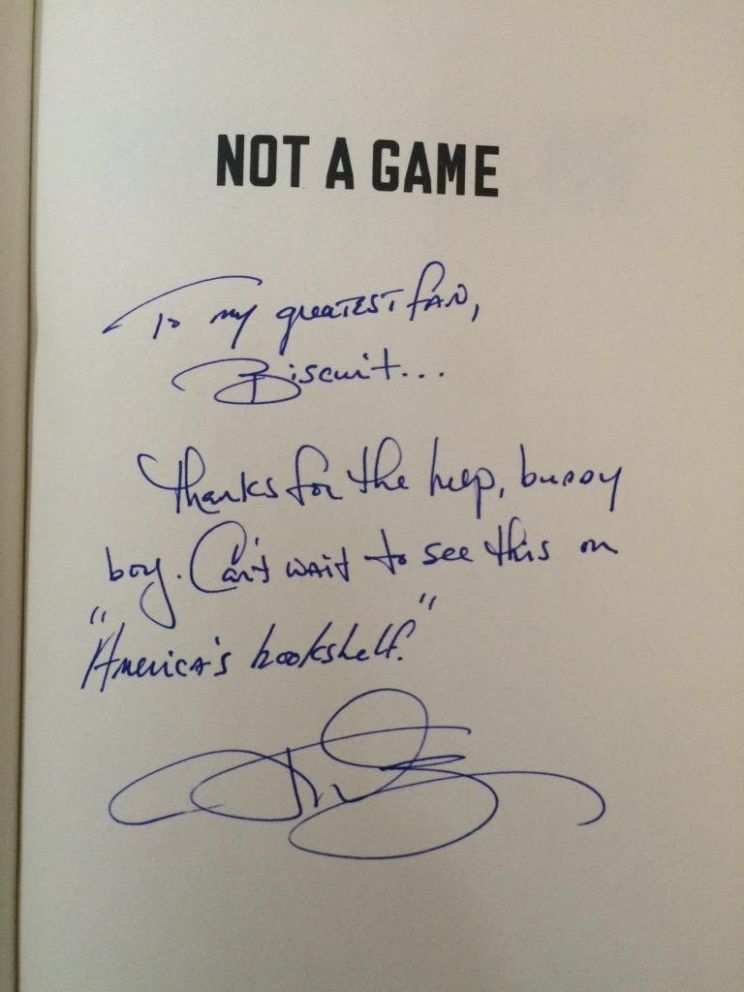 NOT A GAME
To my greatest fan,
Biscuit...
Thanks for the help, buddy
boy. Can't wait to see this on
"America's bookshelf."